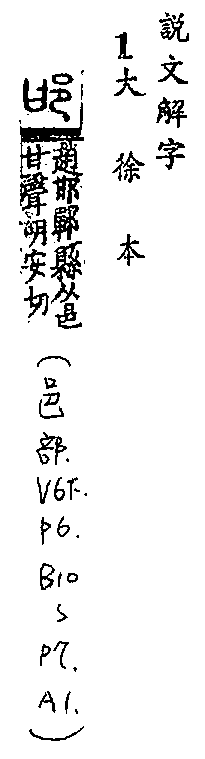 說文解字
1大徐本
邯
趙邯鄲縣从邑
甘聲胡安切
(邑部.V6下.P6.B10~P7.A1.)